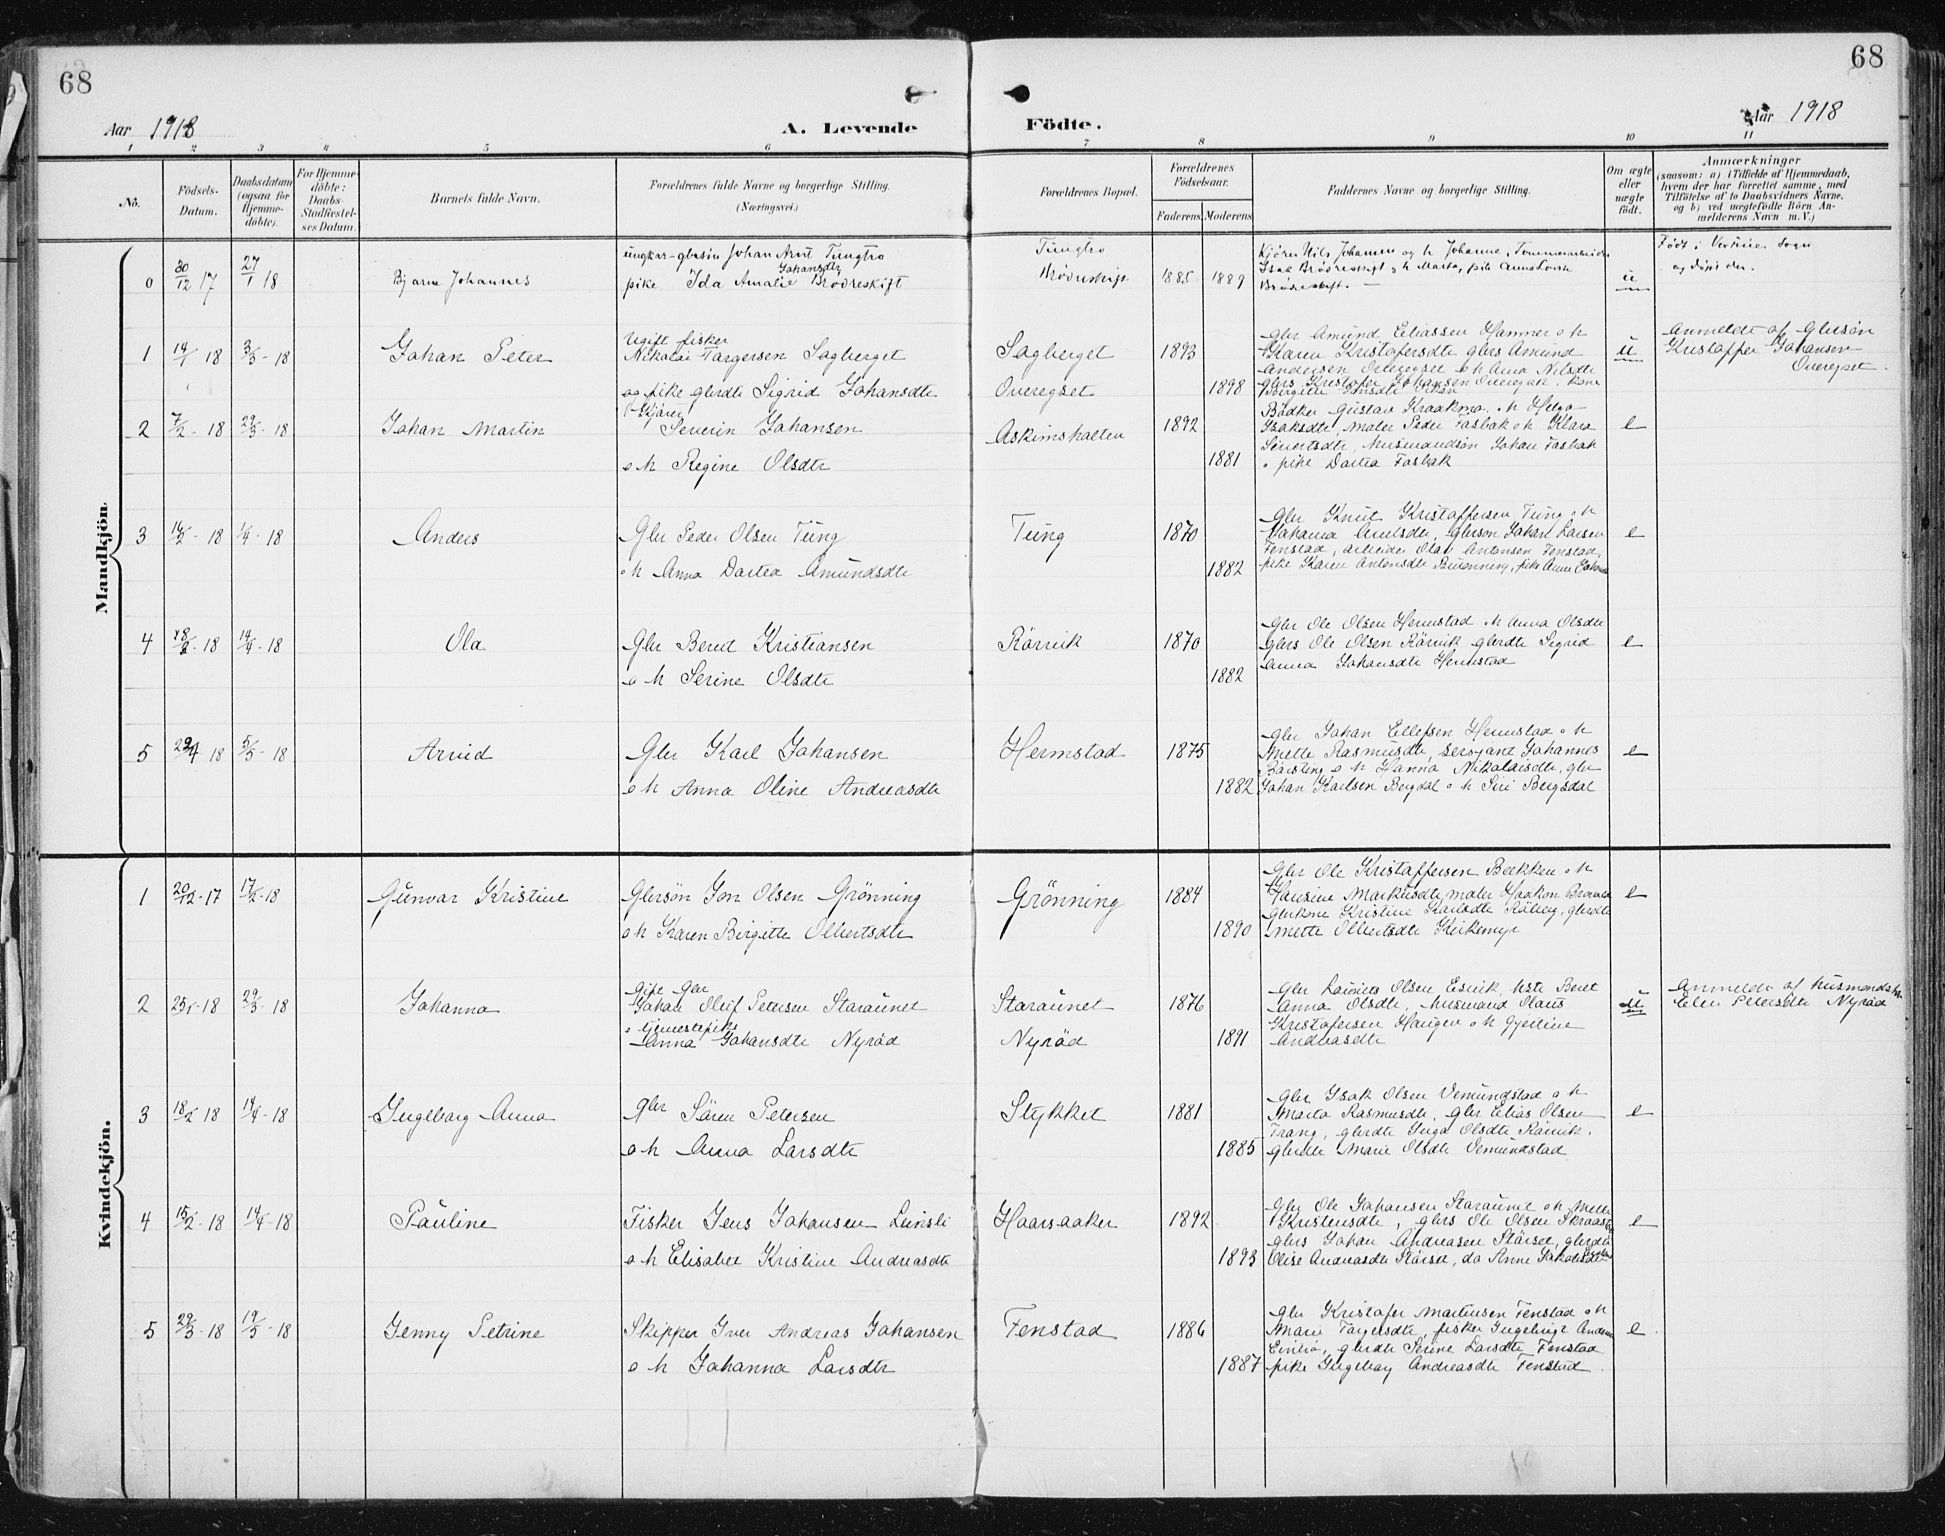 68
68
Aar 1918
A. Levende
Födte.
Aar 1918
1 2 3 4 5 6 7 8 9 10 11
No.
Födsels-Datum.
Daabsdatum (ogsaa for Hjemme-döbte).
For Hjemme-döbte: Daabs-Stadfæstel-ses Datum.
Barnets fulde Navn.
Forældrenes fulde Navne og borgerlige Stilling.
(Næringsvei.)
Forældrenes Bopæl.
Forældrenes Födselsaar.
Faderens Moderens
Faddernes Navne og borgerlige Stilling.
Om ægte eller uægte födt.
Anmærkninger
(saasom: a) i Tilfælde af Hjemmedaab,
hvem der har forrettet samme, med
Tilföielse af to Daabsvidners Navne,
og b) ved uægtefödte Börn An-
melderens Navn m. V.)
Mandkjön.
0 30/12 17 27/1 18 Bjarne Johannes
ungkar Johan Arnt Tungtrø
pike Ida Amalie Johansdtr Brødreskift
Tungtrø
Brødreskift 1885 1889
Nils Johansen og h Johanne
Isak Brødreskift o h Marta, pike Anna
Brødreskift. u
Født i sogn
1 14/1 18 3/3 - 18 Johan Peter
Ugift fisker
Nikolai Torgersen Sagberget
og pike glerdtr Sigrid Johansdtr
Sagberget 1893
Overegset 1898
Gbr Amund Eliassen Hammer o h
Karen Kristofersdtr, gbrs Amund
Andersen Overegset o h Anna Nilsdtr
gbrs Kristofer Johansen Overegset, kone
Birgitte u
Anmeldt af gbrsøn
Kristoffer Johansen
Overegset.
2 7/2 - 18 29/3 - 18 Johan Martin
(Kjører)
Severin Johansen
o h Regine Olsdtr
Askimsholten 1892
1881
Bødker Gustav Kraakmo o h Helga
Isaksdtr, maler Peder Fosbak o h Klara
Sivertsdtr, husmandsøn Johan Fosbak
o pike Dortea Fosbak e
3 16/2 - 18 1/4 - 18 Anders
Gbr Peder Olsen Tung
o h Anna Dortea Amundsdtr
Tung 1870
1882
Gbr Knut Kristoffersen Tung o h
Johanna Arntsdtr, gbrsøn Johan Larsen
Fenstad, arbeider Olav Antonsen Fenstad,
pike Karen Antonsdtr, pike Anne e
4 18 14/4 - 18 Ola
Gbr Bernt Kristiansen
o h Serine Olsdtr
Rörvik 1870
1882
Gbr Ole Olsen Hermstad o h Anna Olsdtr
gbrs Ole Olsen Rörvik gbrdtr Sigrid
Anna Johansdtr Hermstad e
5 29/4 18 5/5 - 18 Arvid
Gbr Karl Johansen
o h Anna Oline Andreasdtr
Hermstad 1875
1882
Gbr Johan Ellefsen Hermstad o h
Mette Rasmusdtr, sersjant Johannes
o h Hanna Nikolaisdtr, gbr
Johan Karlsen Bergdal o h Siri Bergsdal e
Kvindekjön.
1 20/12 - 17 17/2 - 18 Gunvor Kristine
Gbrsøn Jon Olsen Grönning
o h Karen Birgitte Olbertsdtr
Grönning 1884
1890
Gbr Ole Kristoffersen Bakken o h
Hansine Markusdtr, maler Haakon
gbrkone Kristine Karlsdtr Röberg, gbrdtr
Mette Olbertsdtr Kirkemyr e
2 25/1 - 18 29/3 - 18 Johanna
Gift gbr
Johan Oluf Petersen Staraunet
o tjenestepike
Anna Johansdtr Nyröd
Staraunet 1876
Nyröd 1891
Gbr Laurits Olsen Esvik, hste Beret
Anna Olsdtr, husmand Olaus
Kristofersen Haugen o h Gjertine
Andreasdtr u
Anmeldt af husmandsk.
Elen Petersdtr Nyröd
3 18/2 18 14/4 - 18 Ingeborg Anna
Gbr Sören Petersen
o h Anna Larsdtr
Stykket 1881
1885
Gbr Isak Olsen Vemundstad o h
Marta Rasmusdtr, gbr Elias Olsen
Trang, gbrdtr Inga Olsdtr Rörvik,
gbrdtr Marie Olsdtr Vemundstad e
4 15/2 - 18 14/4 - 18 Pauline
Fisker Jens Johansen
o h Elisabet Kristine Andreasdtr
Haarsaaker 1892
1893
Gbr Ole Johansen Staraunet o h Mette
Kristensdtr, gbrs Ole Olsen
gbrs Johan Andreasen Störset, gbrdtr
Olise Andreasdtr Störset, do Anne Jakobsdtr e
5 29/3 - 18 19/5 - 18 Jenny Petrine
Skipper Iver Andreas Johansen
o h Johanna Larsdtr
Fenstad 1886
1887
Gbr Kristofer Martinsen Fenstad o h
Marie Torgersdtr, fisker Ingebrigt
gbrdtr Serine Larsdtr Fenstad
pike Ingeborg Andreasdtr Fenstad e